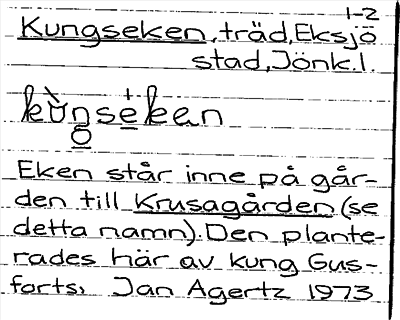 1-2
Kungseken, träd, Eksjö
stad, Jönk.l.
kùngseken
Eken står inne på går-
den till Krusagården (se
detta namn). Den plante-
rades här av kung Gus-
forts. Jan Agertz 1973